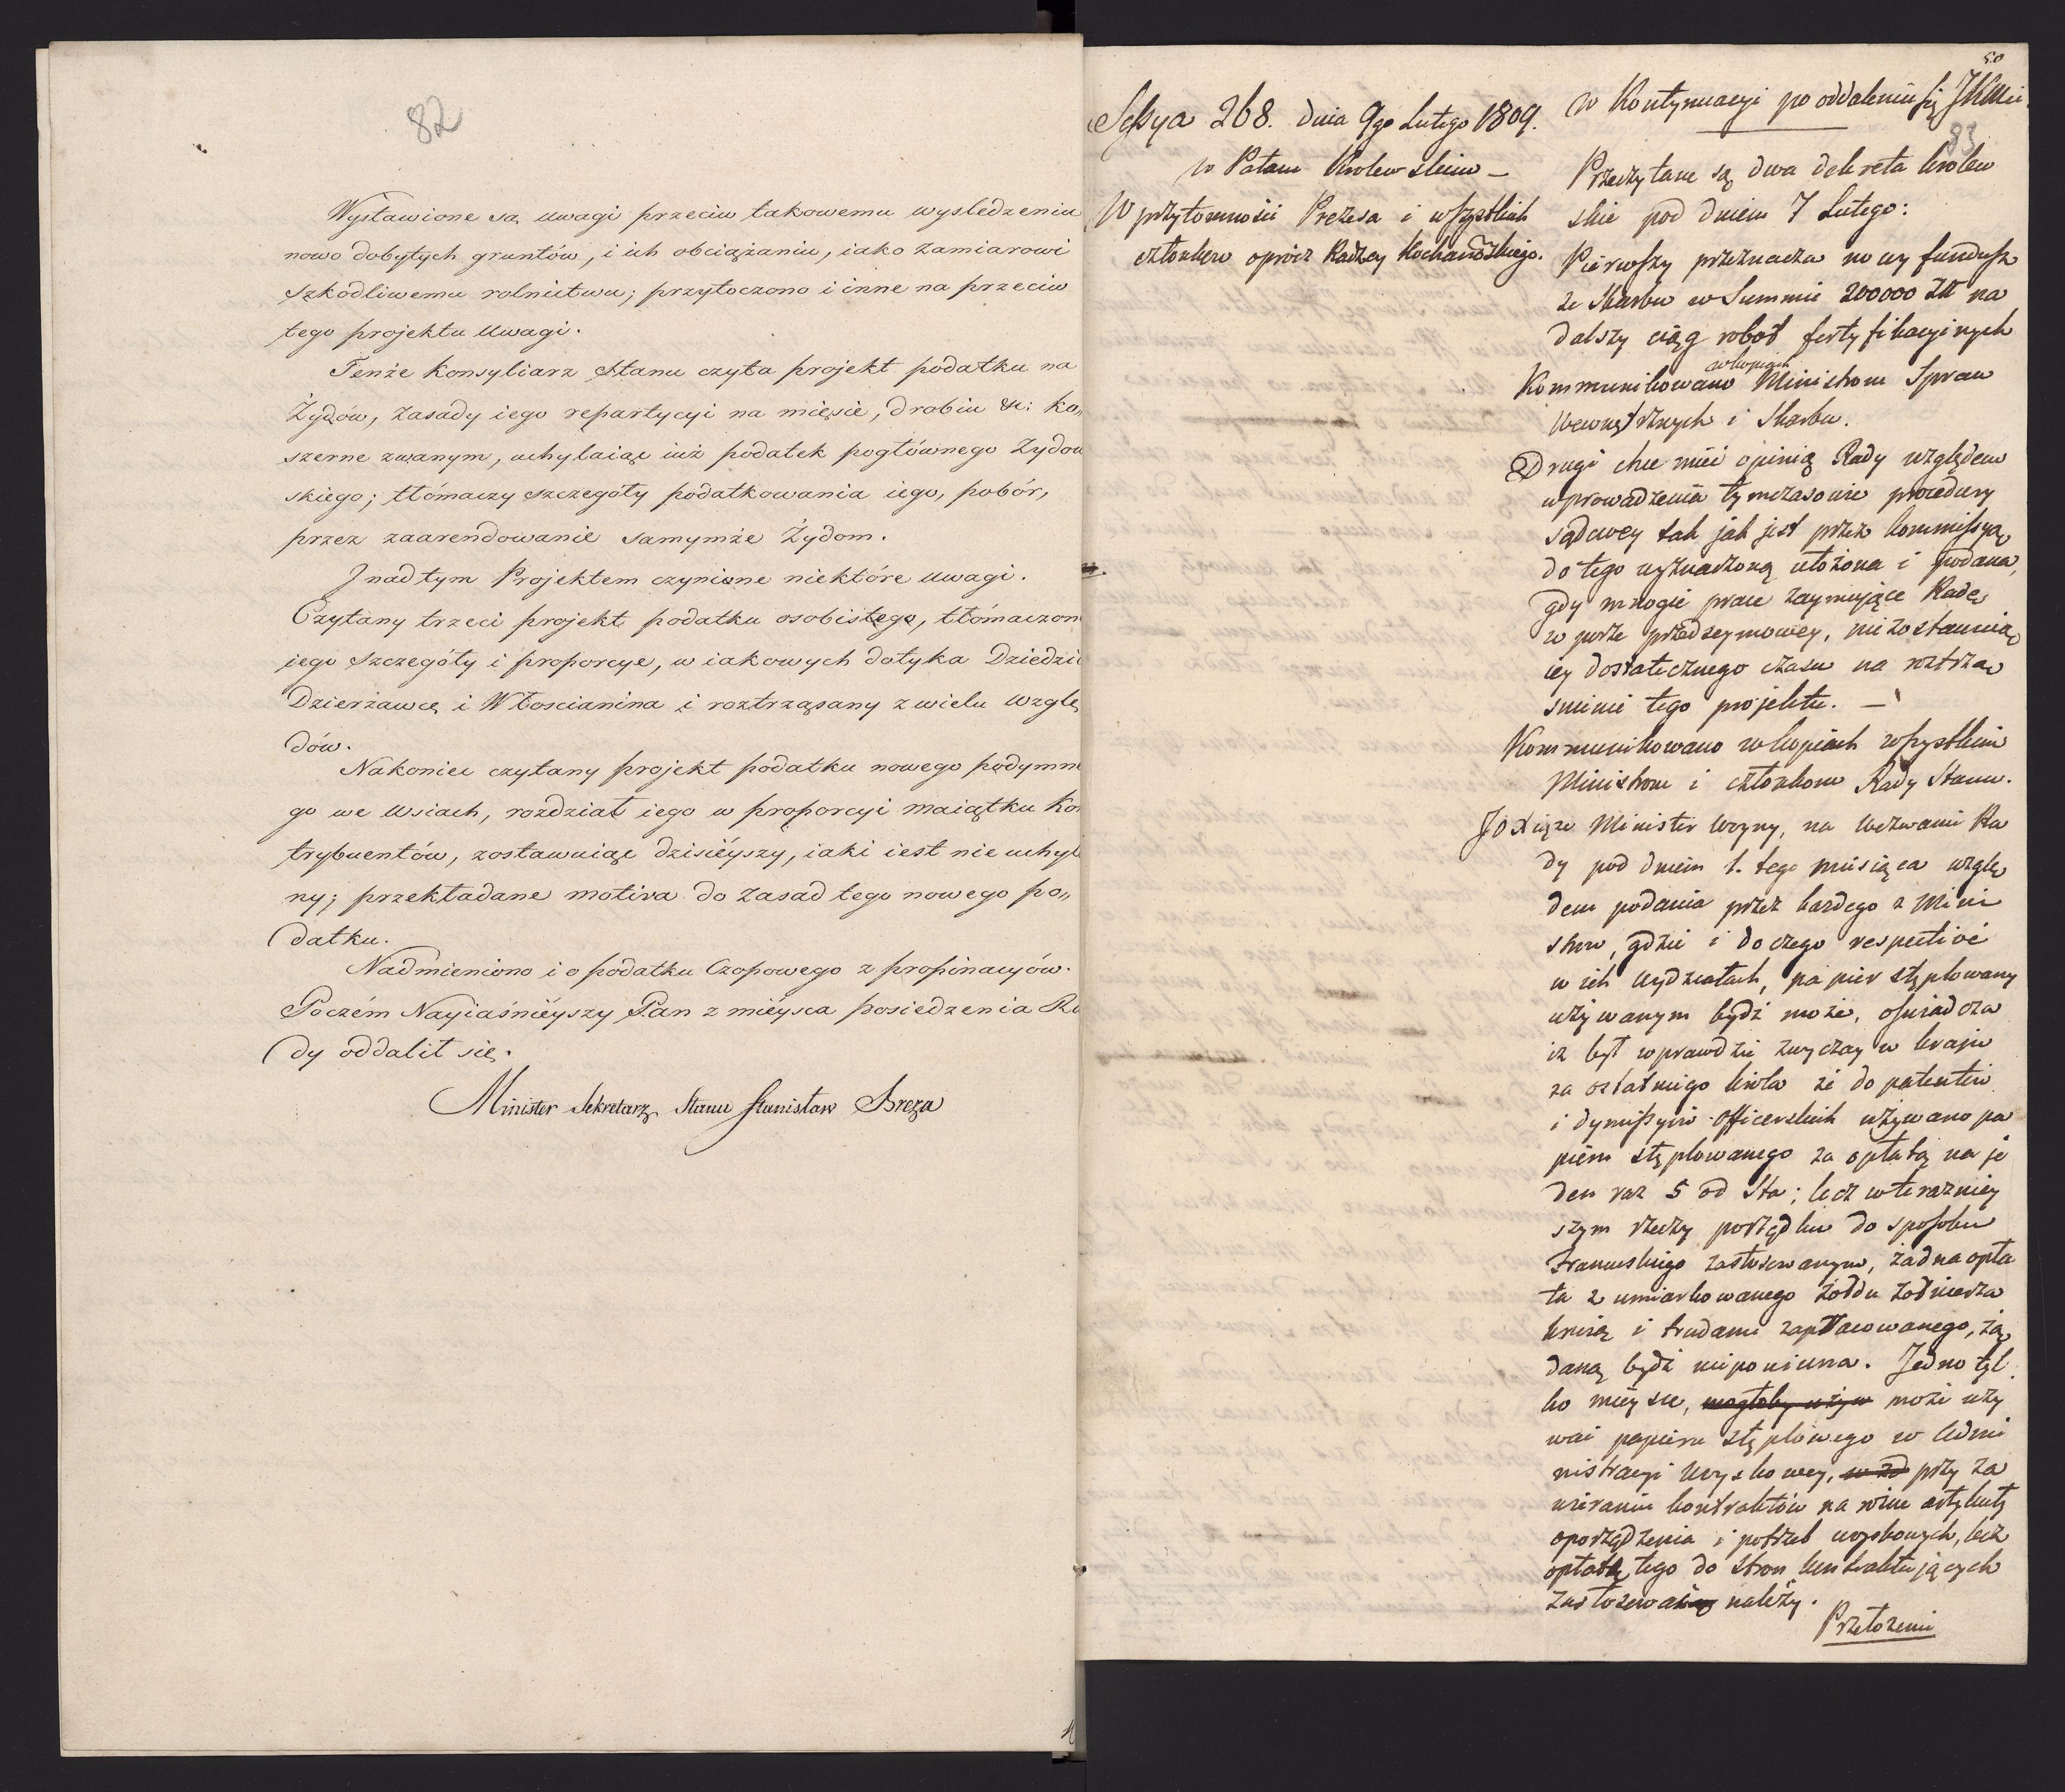 82
Wystawione są uwagi przeciw takowemu wysledzeniu
nowo dobytych gruntów, i ich obciążaniu, iako zamiarowi
szkodliwemu rolnictwu; przytoczono i inne na przeciw
tego projektu uwagi.
Tenże Konsyliarz Stanu czyta projekt podatku na
Żydów, zasady iego repartycyi na mięsie, drobiu &c: ko„
szerne zwanym, uchylaiąc iuż podatek pogłównego Żydow
skiego; tłómaczy szczegóły podatkowania iego, pobór,
przez zaarendowanie samymże Żydom.
I nad tym Projektem czynione niektóre uwagi.
Czytany trzeci projekt podatku osobistego, tłómaczon
jego szczegóły i proporcye, w iakowych dotyka Dziedzi
Dzierżawcę i Włoscianina i roztrząsany z wielu wzglę
dów.
Nakoniec czytany projekt podatku nowego podymne
go we wsiach, rozdział iego w proporcyi maiątku Kon
trybuentów, zostawuiąc dzisiéyszy, iaki iest nie uchyl
ny; przekładane motiva do zasad tego nowego po„
datku.
Nadmieniono i o podatku Czopowego z propinacyów.
Poczém Nayiaśniéyszy Pan z miéysca posiedzenia Ra
dy oddalił się.
Minister Sekretarz Stanu Stanisław Breza
50
83
Sessya 268. dnia 9go Lutego 1809.
w Pałacu Krolewskim –
W przytomności Prezesa i wszystkich
członków oprócz Radzcy Kochanowskiego.
w Kontynuacyi po oddaleniu się JKMci.
Przeczytane są dwa dekreta krolew
skie pod dniem 7 Lutego:
Pierwszy przeznacza nowy fundusz
ze Skarbu w Summie 200000 Zł na
dalszy ciąg robot fortyfikacyinych
w kopiach
Kommunikowano Ministrom Spraw
Wewnętrznych i Skarbu.
Drugi chce mieć opinią Rady względem
wprowadzenia tymczasowie procedury
sądowey tak jak jest przez kommissyą
do tego wyznaczoną ułożona i podana,
gdy mnogie prace zaymujące Radę
w porze przedseymowey, nie zostawia
iey dostatecznego czasu na roztrzą
snienie tego projektu. –
Kommunikowano w kopiach wszystkim
Ministrom i członkom Rady Stanu.
JO Xiąże Minister Woyny, na wezwanie Ra
dy pod dniem 1. tego miesiąca wzglę
dem podania przez każdego z Mini
strow, gdzie i do czego respective
w ich wydziałach, papier stęplowany
używanym bydź może, oświadcza
iż był wprawdzie zwyczay w kraju
za ostatniego Króla że do patentów
i dymissyiów officerskich używano pa
pieru stęplowanego za opłatą na je
den raz 5 od Sta; lecz w teraźniey
szym rzeczy porządku do sposobu
francuskiego zastosowanym, żadna opła
ta z umiarkowanego żołdu żołnierza
krwią i trudami zapracowanego, żą
daną bydź niepowinna. Jedno tyl
ko mieysce, mogłoby używ może uży
wać papieru stęplowego w Admi
nistracyi woyskowey, w zd przy za
wieraniu kontraktów na różne artykuły
oporządzenia i potrzeb woyskowych, lecz
opłatę tego do stron kontraktujących
zastosować należy.
Przełożenie